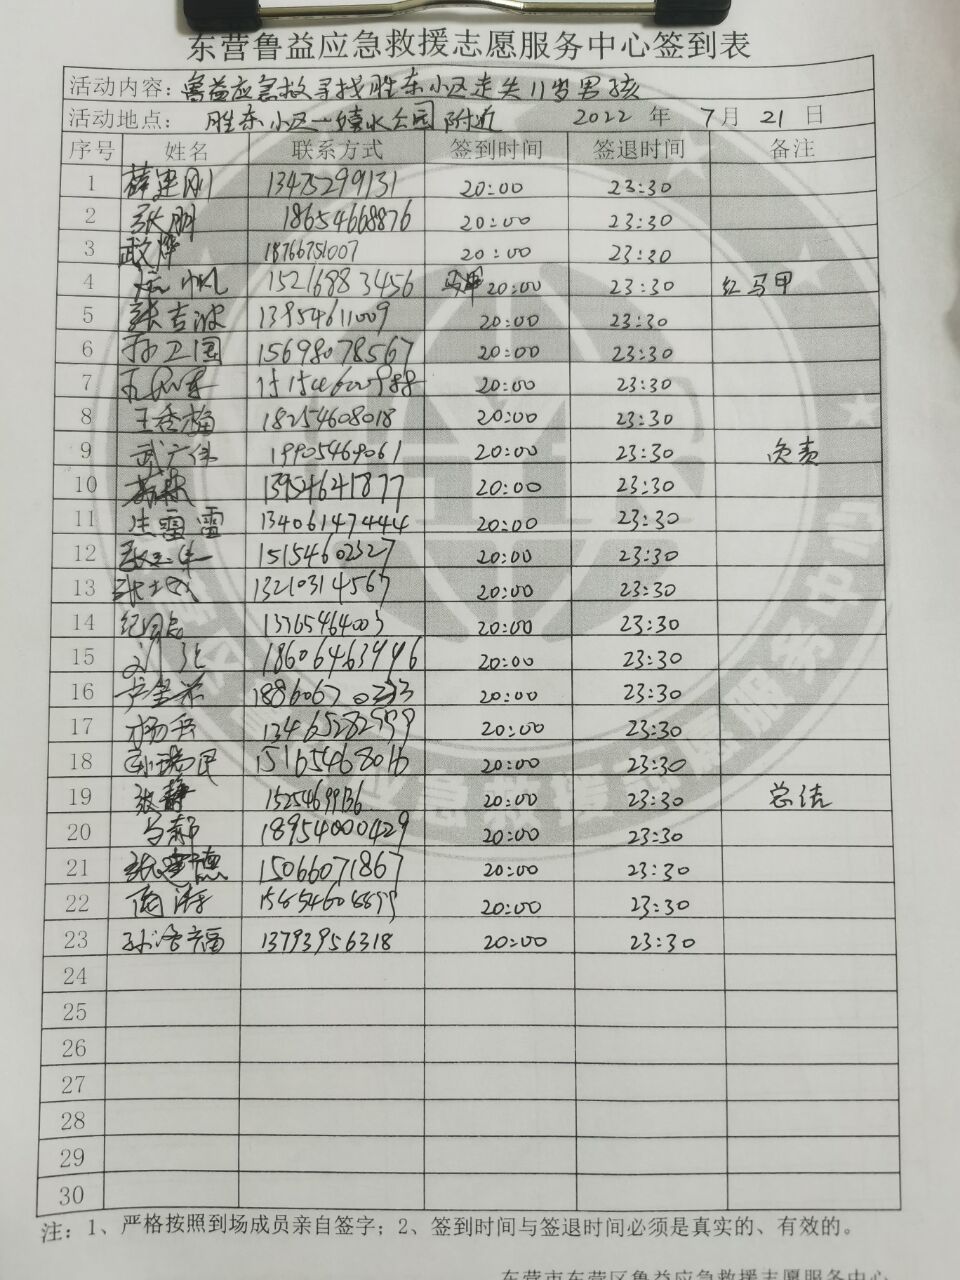 东营鲁益应急救援志愿服务中心签到表
活动内容：鲁益应急救寻找胜东小区走失11岁男孩
活动地点： 胜东小区一 水公园附近 2022 年 7月 21 日
序号 姓名 联系方式 签到时间 签退时间 备注
1 薛建刚 13475299131 20:00 23:30
2 张朋 18654668876 20:00 23:30
3 18766751007 20:00 23:30
4 15216883456 马甲 20:00 23:30 红马甲
5 张吉波 13954611009 20:00 23:30
6 孙卫国 15698078567 20:00 23:30
7 20:00 23:30
8 王秀梅 18254608018 20:00 23:30
9 武广伟 19905469061 20:00 23:30 负责
10 13954641877 20:00 23:30
11 生雷雷 13406147444 20:00 23:30
12 15154602327 20:00 23:30
13 13210314567 20:00 23:30
14 20:00 23:30
15 刘 20:00 23:30
16 20:00 23:30
17 杨 20:00 23:30
18 民 15165468016 20:00 23:30
19 张静 20:00 23:30 总结
20 马郝 18954000429 20:00 23:30
21 15066071867 20:00 23:30
22 20:00 23:30
23 孙 福 13793956318 20:00 23:30
24
25
26
27
28
29
30
注：1、严格按照到场成员亲自签字；2、签到时间与签退时间必须是真实的、有效的。
东营市东营区鲁益应急救援志愿服务中心